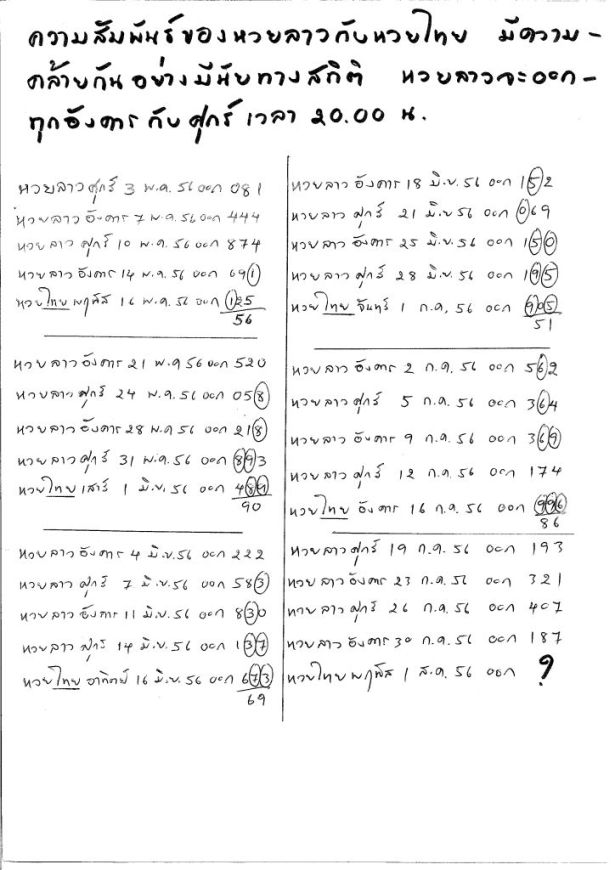 ความสัมพันธ์ของหวยลาวกับหวยไทย มีความ-
คล้ายกันอย่างมีนัยทางสถิติ หวยลาวจะออก-
ทุกอังคารกับศุกร์ เวลา 20.00 น.
หวยลาวศุกร์ 3 พ.ค. 56 ออก 081
หวยลาวอังคาร 7 พ.ค. 56 ออก 444
หวยลาวศุกร์ 10 พ.ค. 56 ออก 874
หวยลาวอังคาร 14 พ.ค. 56 ออก 691
หวยไทยพฤหัส 16 พ.ค. 56 ออก 125
56
หวยลาวอังคาร 21 พ.ค 56 ออก 520
หวยลาวศุกร์ 24 พ.ค. 56 ออก 058
หวยลาวอังคาร 28 พ.ค. 56 ออก 218
หวยลาวศุกร์ 31 พ.ค. 56 ออก 893
หวยไทยเสาร์ 1 มิ.ย. 56 ออก
90
หวยลาวอังคาร 4 มิ.ย. 56 ออก 222
หวยลาวศุกร์ 7 มิ.ย. 56 ออก 583
หวยลาวอังคาร 11 มิ.ย. 56 ออก 830
หวยลาวศุกร์ 14 มิ.ย. 56 ออก 137
หวยไทยอาทิตย์ 16 มิ.ย. 56 ออก 673
69
หวยลาวอังคาร 18 มิ.ย. 56 ออก 152
หวยลาวศุกร์ 21 มิ.ย. 56 ออก 069
หวยลาวอังคาร 25 มิ.ย. 56 ออก 150
หวยลาวศุกร์ 28 มิ.ย. 56 ออก 195
หวยไทยจันทร์ 1 ก.ค. 56 ออก 905
51
หวยลาวอังคาร 2 ก.ค. 56 ออก 562
หวยลาวศุกร์ 5 ก.ค. 56 ออก 364
หวยลาวอังคาร 9 ก.ค. 56 ออก 369
หวยลาวศุกร์ 12 ก.ค. 56 ออก 174
หวยไทยอังคาร 16 ก.ค. 56 ออก 996
86
หวยลาวศุกร์ 19 ก.ค. 56 ออก 193
หวยลาวอังคาร 23 ก.ค. 56 ออก 321
หวยลาวศุกร์ 26 ก.ค. 56 ออก 407
หวยลาวอังคาร 30 ก.ค. 56 ออก 187
หวยไทยพฤหัส 1 ส.ค. 56 ออก ?